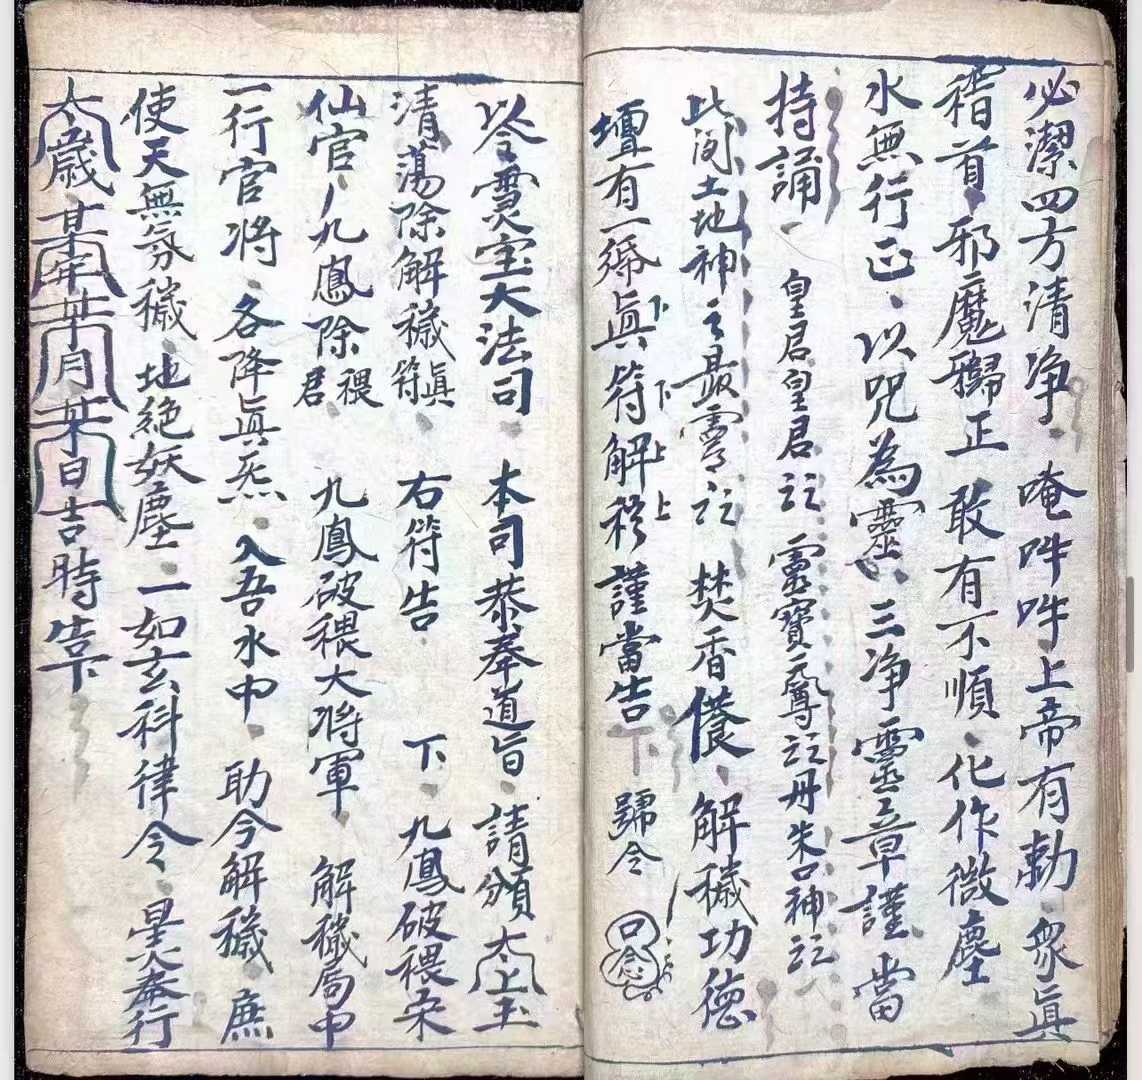 必潔四方清净唵吽吽上帝有勅衆真
稽首邪魔歸正敢有不順化作微塵
水無行正以咒為靈三净靈章謹當
持誦皇君皇君註靈寶元尊註丹朱口神註
此间土地神之最靈註焚香供養解穢功德
壇有一 真符解秽謹當告下號令口念
下下上上
以今霊宝大法司本司恭奉道旨請頒太上玉
清蕩除解穢真符右符告下九鳳破穢宋
仙官九鳳除穢君九鳳破穢大将軍解穢局中
一行官将各降真炁入吾水中助今解穢庶
使天無氛穢地絕妖塵一如玄科律令星火奉行
太歲某年某月某日吉時告下